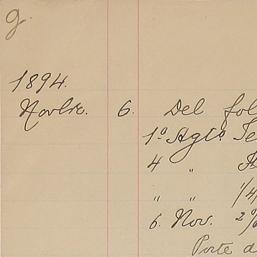 g.
1894.
Novbre. 6. Del fol
1º Agto Te
4 "
" " 1/4
6. Nov. 2%
Porte d